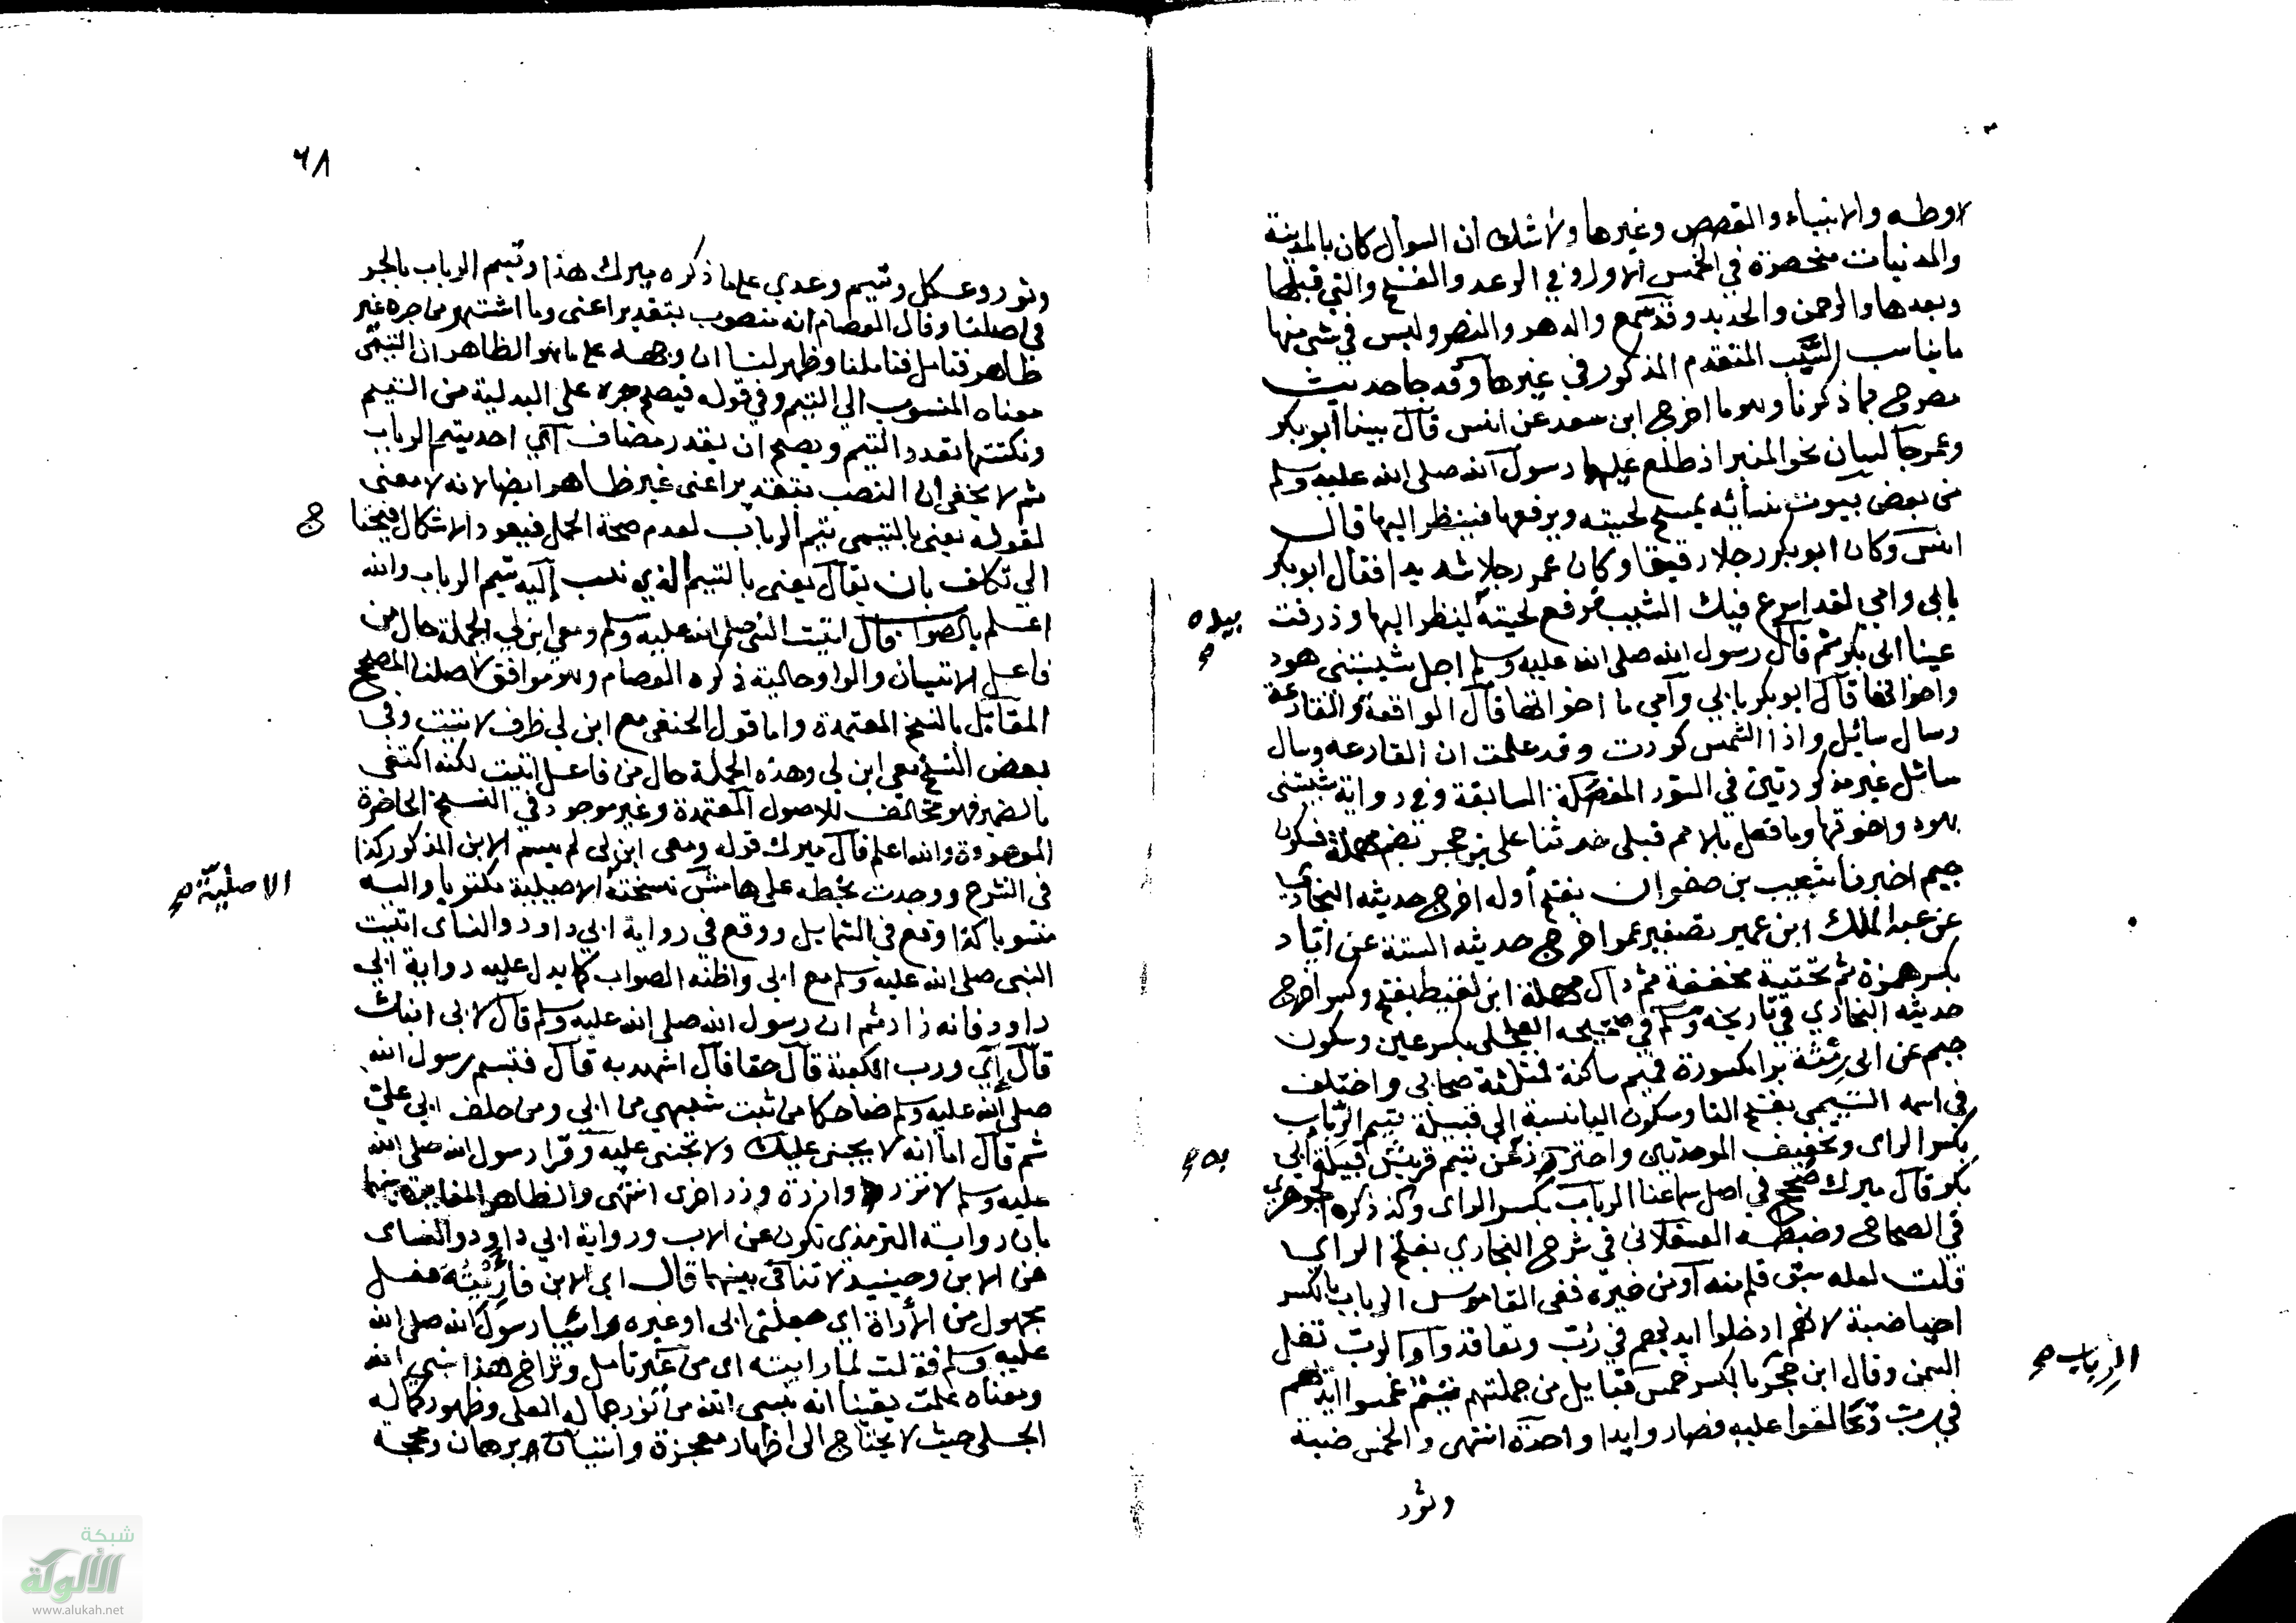 لا وطه والانبياء والقصص وغيرها ولا شك ان السوال كان بالمدينة
والمدنيات منحصرة في الخمس الاول وفي الرعد والفتح والتي قبلها
وبعدها والرحمن والحديد وقد سمع والدهر والنصر وليس في شي منها
ما يناسب الشيب المتقدم المذكور في غيرها وقد جا حديث
مصرح بما ذكرنا وهو ما اخرج ابن سعد عن انس قال بينما ابو بكر
وعمر جالسان نحو المنبر اذ طلع عليهما رسول الله صلى الله عليه وسلم
من بعض بيوت نسائه يمسح لحيته ويرفعها فينظر اليها قال
انس وكان ابو بكر رجلا رقيقا وكان عمر رجلا شديدا فقال ابو بكر
بابي وامي لقد اسرع فيك الشيب فرفع لحيته لينظر اليها وذرفت
بيده صح
عينا ابى بكر ثم قال رسول الله صلى الله عليه وسلم اجل شيبتني هود
واخواتها قال ابو بكر بابي وامي ما اخواتها قال الواقعة والقارعة
وسال سائل واذا الشمس كورت وقد علمت ان القارعه وسال
سائل غير مذكورتين في السور المفصلة السابقة وفي رواية شيبتني
هود واخوتها وما فعل بالامم قبلي حدثنا علي بن حجر بضم مهملة فسكون
جيم اخبرنا شعيب بن صفوان بفتح أوله اخرج حديثه البخاري
عن عبد الملك ابن عمير تصغير عمر اخرج حديثه الستة عن اياد
بكسر همزة ثم تحتية مخففة ثم دال مهملة ابن لقيط بفتح وكسر اخرج
حديثه البخاري في تاريخه ومسلم في صحيحه العجلي بكسر عين وسكون
جيم عن ابى رمثة برا مكسورة فميم ساكنة فمثلثة صحابي واختلف
في اسمه التيمي بفتح التا وسكون اليا نسبة الى قبيلة تيم الرباب
بكسر الراى وتخفيف الموحدتين واحترز عن تيم قريش قبيلة ابي
به صح
بكر قال ميرك صحح في اصل سماعنا الرباب بكسر الراى وكذا ذكره الجوهري
في الصحاح وضبطه العسقلاني في شرح البخاري بفتح الراي
قلت لعله سبق قلم منه او من غيره ففي القاموس الرباب بالكسر
احيا ضبة لانهم ادخلوا ايديهم في رُبّ وتعاقدوا والرب ثفل
السمن وقال ابن حجر بالكسر خمس قبايل من جملتهم تيم غمسوا ايديهم
الرِباب صح
في رب وتحالفوا عليه فصاروا يدا واحدة انتهى والخمس ضبة
وثور
٦٨
وثور وعكل وتيم وعدي على ما ذكره ميرك هذا وتيم الرباب بالجر
في اصلنا وقال العصام انه منصوب بتقدير اعنى وما اشتهر من جره غير
ظاهر فتامل فتاملنا وظهر لنا ان وجهه على ما هو الظاهر ان التيمى
معناه المنسوب الي التيم وفي قوله فيصلح جره على البدلية من التيم
ونكتتها تعدد التيم ويصح ان يقدر مضاف اي احد تيم الرباب
ثم لا يخفى ان النصب بتقدير اعنى غير ظاهر ايضا لانه لا معنى
لقوله يعني بالتيمى تيم الرباب لعدم صحة الحمل فيعود الاشكال فيحتا
ج
الي تكلف بان يقال يعني بالتيم الذي نسب اليه تيم الرباب والله
اعلم بالصواب قال اتيت النبي صلى الله عليه وسلم ومعي ابن لي الجملة حال من
فاعل الاتيان والواو حالية ذكره العصام وهو موافق لاصلنا المصحح
المقابل بالنسخ المعتمدة واما قول الحنفي مع ابن لي ظرف لاتيت وفى
بعض النسخ معي ابن لي وهذه الجملة حال من فاعل اتيت لكنه اكتفى
بالضمير فهو مخالف للاصول المعتمدة وغير موجود في النسخ الحاضرة
الموجودة والله اعلم قال ميرك قوله ومعى ابن لى لم يسم الابن المذكور كذا
في الشرح ووجدت بخطه على هامش نسخته الاصيلية مكتوبا واليه
الاصليّة صح
منسوبا كذا وقع في الشمايل ووقع في رواية ابي داود والنساى اتيت
النبى صلى الله عليه وسلم مع ابي واظنه الصواب كما يدل عليه رواية ابي
داود فانه زاد ثم ان رسول الله صلى الله عليه وسلم قال لابى ابنك
قال إي ورب الكعبة قال حقا قال اشهد به قال فتبسم رسول الله
صلى الله عليه وسلم ضاحكا من ثبت شبهي من ابي ومن حلف ابي علي
ثم قال اما انه لا يجنى عليك ولا تجنى عليه وقرا رسول الله صلى الله
عليه وسلم لا تزر وازرة وزر اخرى انتهى والظاهر المغايرة بينهما
بان رواية الترمذى تكون عن الاب ورواية ابي داود والنساى
عن الابن وحينيذ لا تنافى بينهما قال اي الابن فأُرِيْتُهُ فعل
مجهول من الأراة اي جعلني ابى او غيره رائيا رسول الله صلى الله
عليه وسلم فقلت لما رايته اى من غير تامل وتراخ هذا نبي الله
ومعناه علمت يقينا انه نبي الله من نور جماله العلى وظهور كماله
الجلي حيث لا يحتاج الى اظهار معجزة واتيان برهان ومحجة
شبكة
الألوكة
www.alukah.net